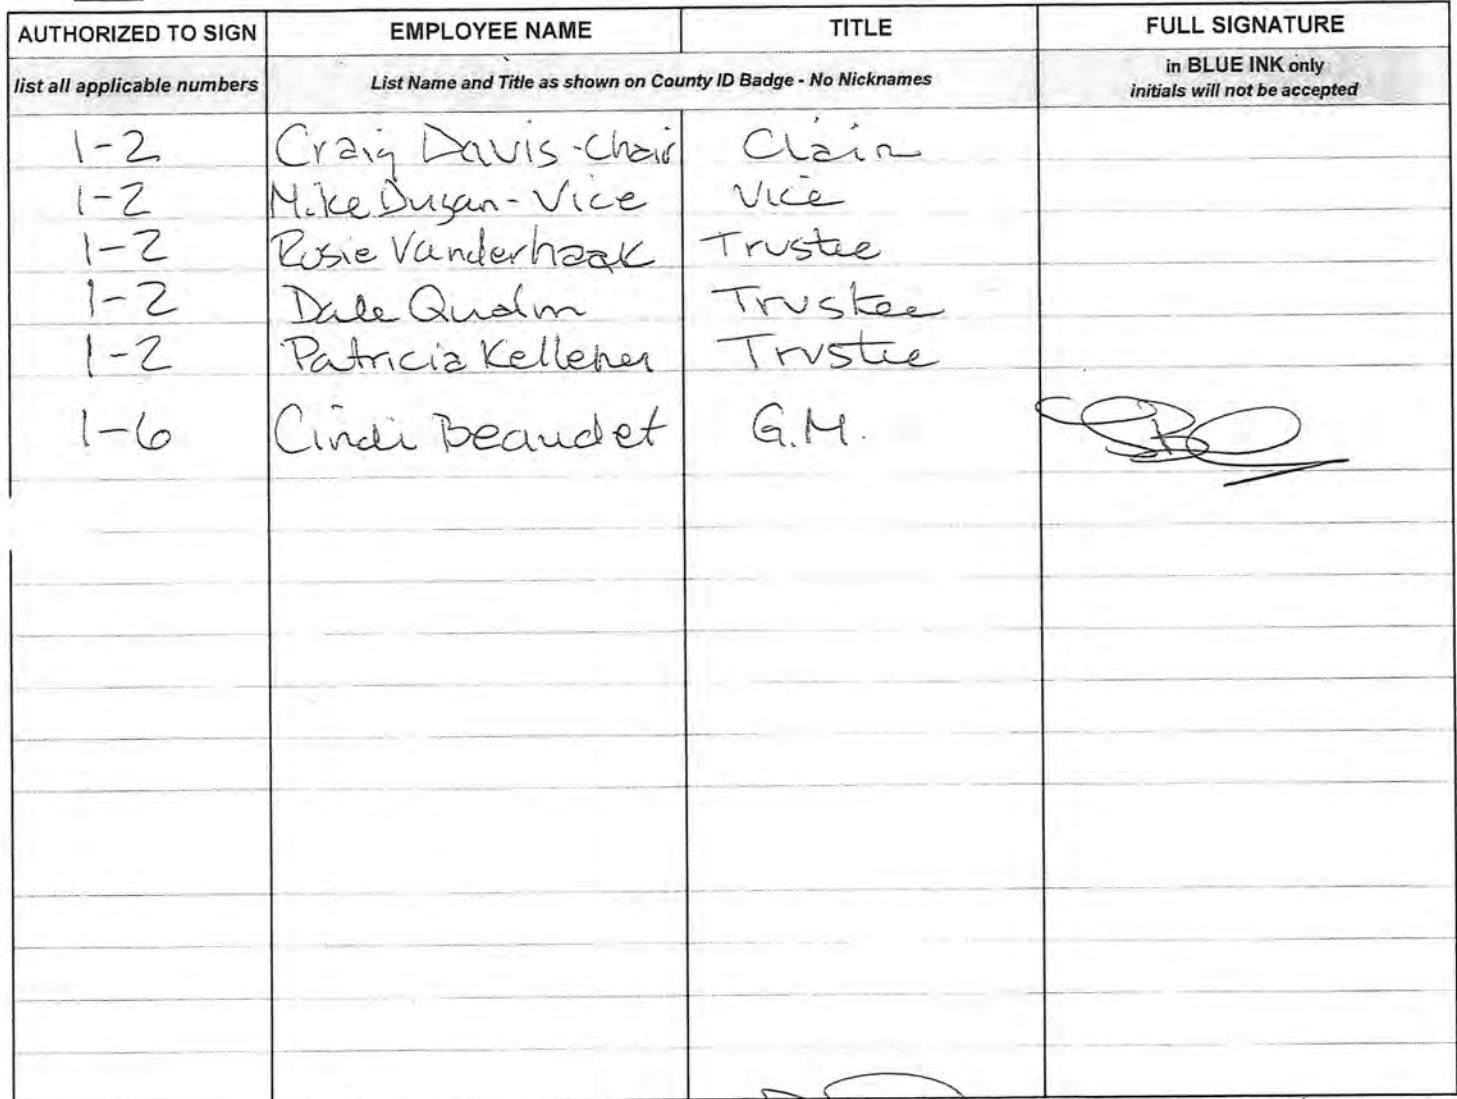 AUTHORIZED TO SIGN EMPLOYEE NAME TITLE FULL SIGNATURE
list all applicable numbers List Name and Title as shown on County ID Badge - No Nicknames in BLUE INK only
initials will not be accepted
1-2 Craig Davis-Chair Chair
1-2 Mike Dugan-Vice Vice
1-2 Rosie Vanderhaak Trustee
1-2 Dale Qualm Trustee
1-2 Patricia Kelleher Trustee
1-6 Cindi Beaudet G.M.